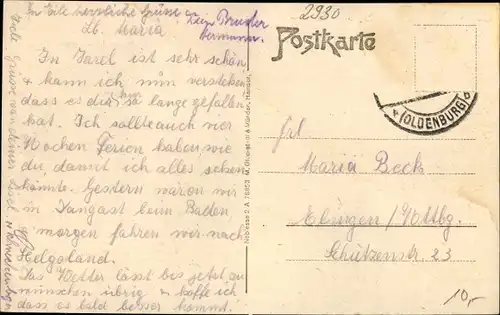 In Eile herzliche Grüsse v. Bruder
Hermann.
Lb. Maria
In Varel ist es sehr schön,
kann ich nun verstehen
dass es dir hier so lange gefallen
hat. Ich sollte auch vier
Wochen Ferien haben, wie
du, damit ich alles sehen
könnte. Gestern waren wir
in Dangast beim Baden,
morgen fahren wir nach
Helgoland.
Das Wetter lässt bis jetzt zu
wünschen übrig u. hoffe ich
dass es bald besser kommt.
Viele Grüsse von deiner
2930
Postkarte
(OLDENBURG)
Frl.
Maria Beck
Ebingen / Wttbg.
Schützenstr. 23
10,-